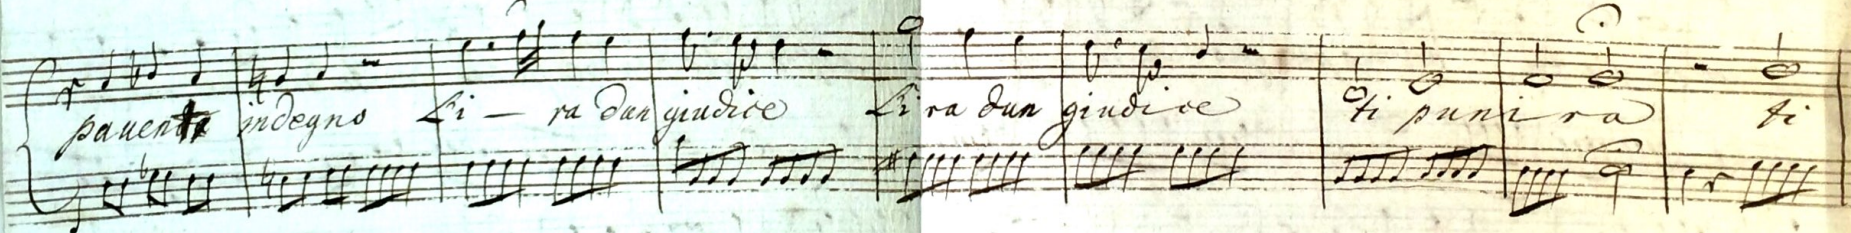 paventa indegno Li — ra dun giudice Li ra dun giudice ti puni ra ti